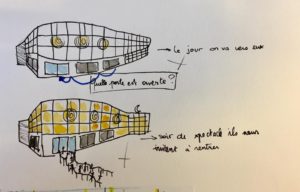 le jour on va vers eux
Quelle porte est ouverte ?
soir de spectacle ils nous
invitent à rentrer